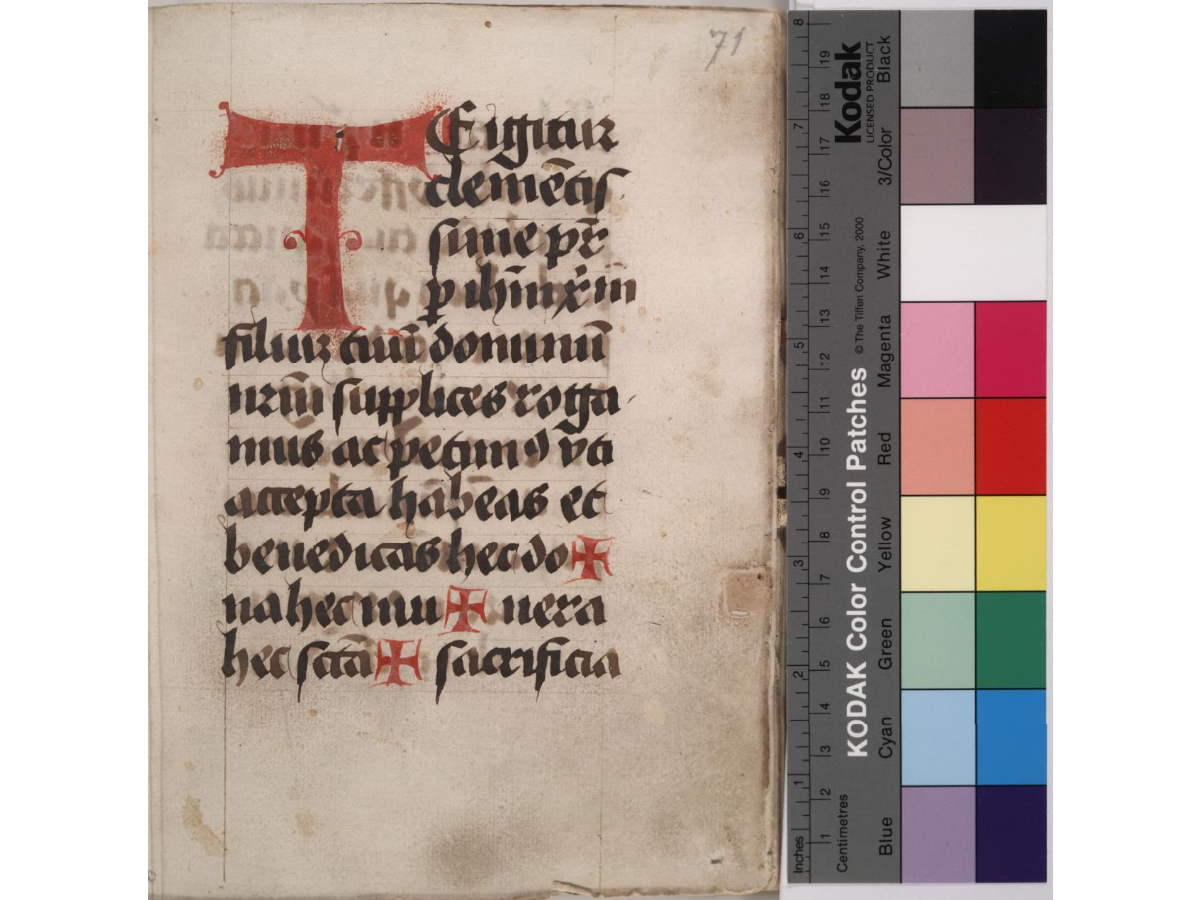 71
TE igitur
clemētis
sime pr̄
p ihm̄ xp̄m
filiū tuū dominū
nrm̄ supplices roga
mus ac petimꝰ vti
accepta habeas et
benedicas hec do✠
na hec mu✠nera
hec sctā✠sacrificia
Kodak
LICENSED PRODUCT
KODAK Color Control Patches
© The Tiffen Company, 2000
Black
3/Color
White
Magenta
Red
Yellow
Green
Cyan
Blue
Inches
1 2 3 4 5 6 7 8
Centimetres
1 2 3 4 5 6 7 8 9 10 11 12 13 14 15 16 17 18 19